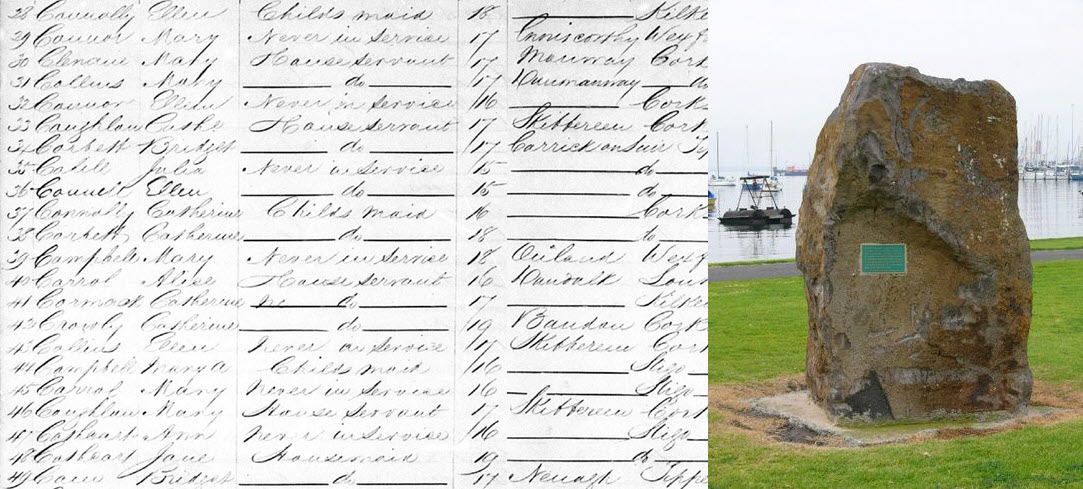 28 Connolly Ellen Childs maid 18 Kilke
29 Connor Mary Never in Service 17 Enniscorthy Wexf
30 Mary House servant 17 Cork
31 Collins Mary do 17 Dunmanway do
32 Connor Ellen Never in Service 16 Cork
33 Coughlan House servant 17 Skibbereen Cork
34 Corbett Bridget do 17 Carrick on Suir Tip
35 Julia Never in Service 15 do
36 Ellen do 15 do
37 Connolly Catherine Childs maid 16 Cork
38 Corbett Catherine do 18 do
39 Campbell Mary Never in Service 18 Wexf
40 Carrol Alice House servant 16 Dundalk Lou
41 Cormack Catherine do 17 Kilke
42 Crowly Catherine do 19 Bandon Cork
43 Collins Ellen never in Service 17 Skibbereen Cor
44 Campbell Mary A Childs maid 16 Sligo
45 Carrol Mary Never in Service 16 Sligo
46 Coughlan Mary House Servant 17 Skibbereen Cork
47 Cathcart Ann never in Service 16 Sligo
48 Cathcart Jane Housemaid 19 do
49 Bridget do 17 Nenagh Tippe